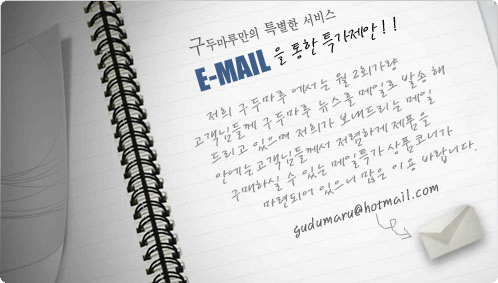 구두마루만의 특별한 서비스
E-MAIL을 통한 특가제안!!
저희 구두마루 에서는 월 2회가량
고객님들께 구두마루 뉴스를 메일로 발송 해
드리고 있으며 저희가 보내드리는 메일
안에는 고객님들께서 저렴하게 제품을
구매하실 수 있는 메일특가 상품코너가
마련되어 있으니 많은 이용 바랍니다.
gudumaru@hotmail.com